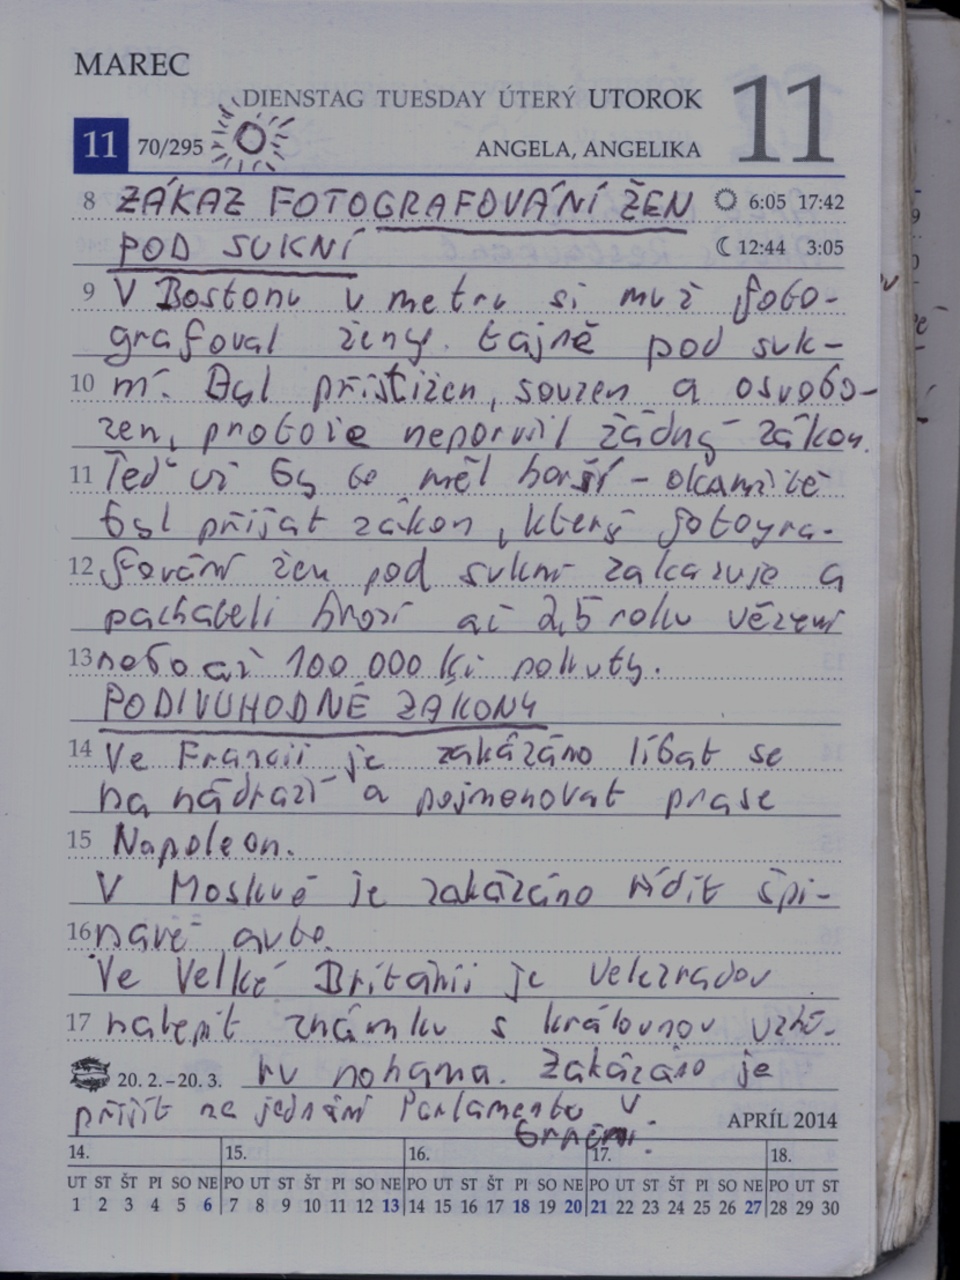 MAREC
DIENSTAG TUESDAY ÚTERÝ UTOROK
11
11 70/295
ANGELA, ANGELIKA
8 ZÁKAZ FOTOGRAFOVÁNÍ ŽEN
6:05 17:42
POD SUKNÍ
12:44 3:05
9 V Bostonu v metru si muž foto-
grafoval ženy tajně pod suk-
10 ní. Byl přistižen, souzen a osvobo-
zen, protože neporušil žádný zákon.
11 Teď už by to měl horší - okamžitě
byl přijat zákon, který fotogra-
12 fování žen pod sukní zakazuje a
pachateli hrozí až 2,5 roku vězení
13 nebo až 100 000 Kč pokuty.
PODIVUHODNÉ ZÁKONY
14 Ve Francii je zakázáno líbat se
na nádraží a pojmenovat prase
15 Napoleon.
V Moskvě je zakázáno řídit špi-
16 navé auto.
Ve Velké Británii je velezradou
17 nalepit známku s královnou vzhů-
20. 2.–20. 3. ru nohama. Zakázáno je
přijít na jednání Parlamentu v
brnění.
APRÍL 2014
14. 15. 16. 17. 18.
UT ST ŠT PI SO NE PO UT ST ŠT PI SO NE PO UT ST ŠT PI SO NE PO UT ST ŠT PI SO NE PO UT ST
1 2 3 4 5 6 7 8 9 10 11 12 13 14 15 16 17 18 19 20 21 22 23 24 25 26 27 28 29 30